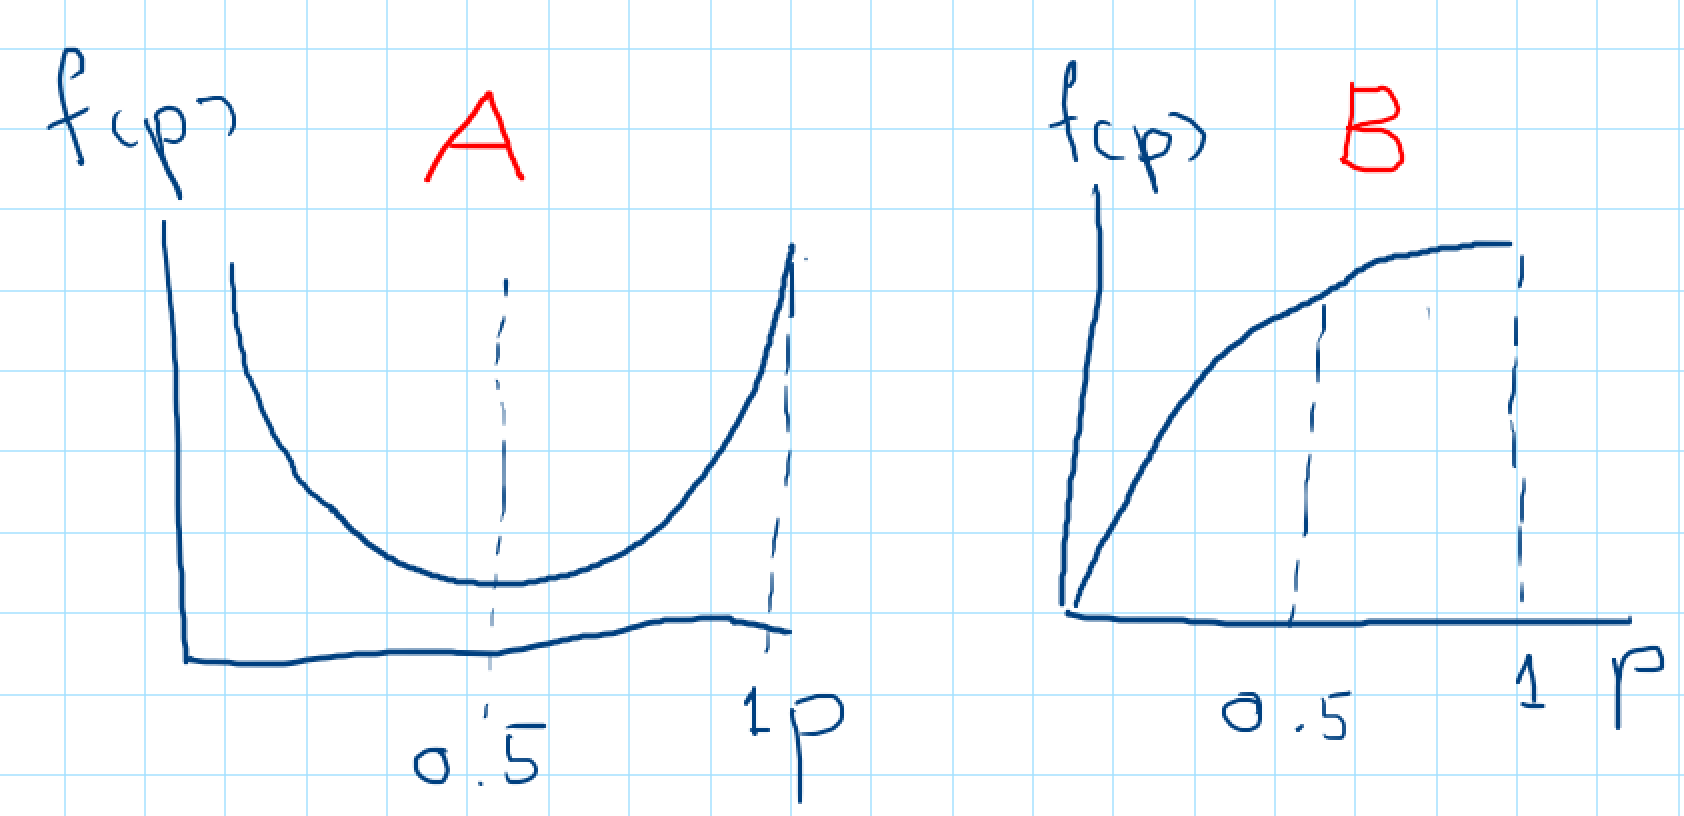 f(p)
A
0.5
1
p
f(p)
B
0.5
1
p